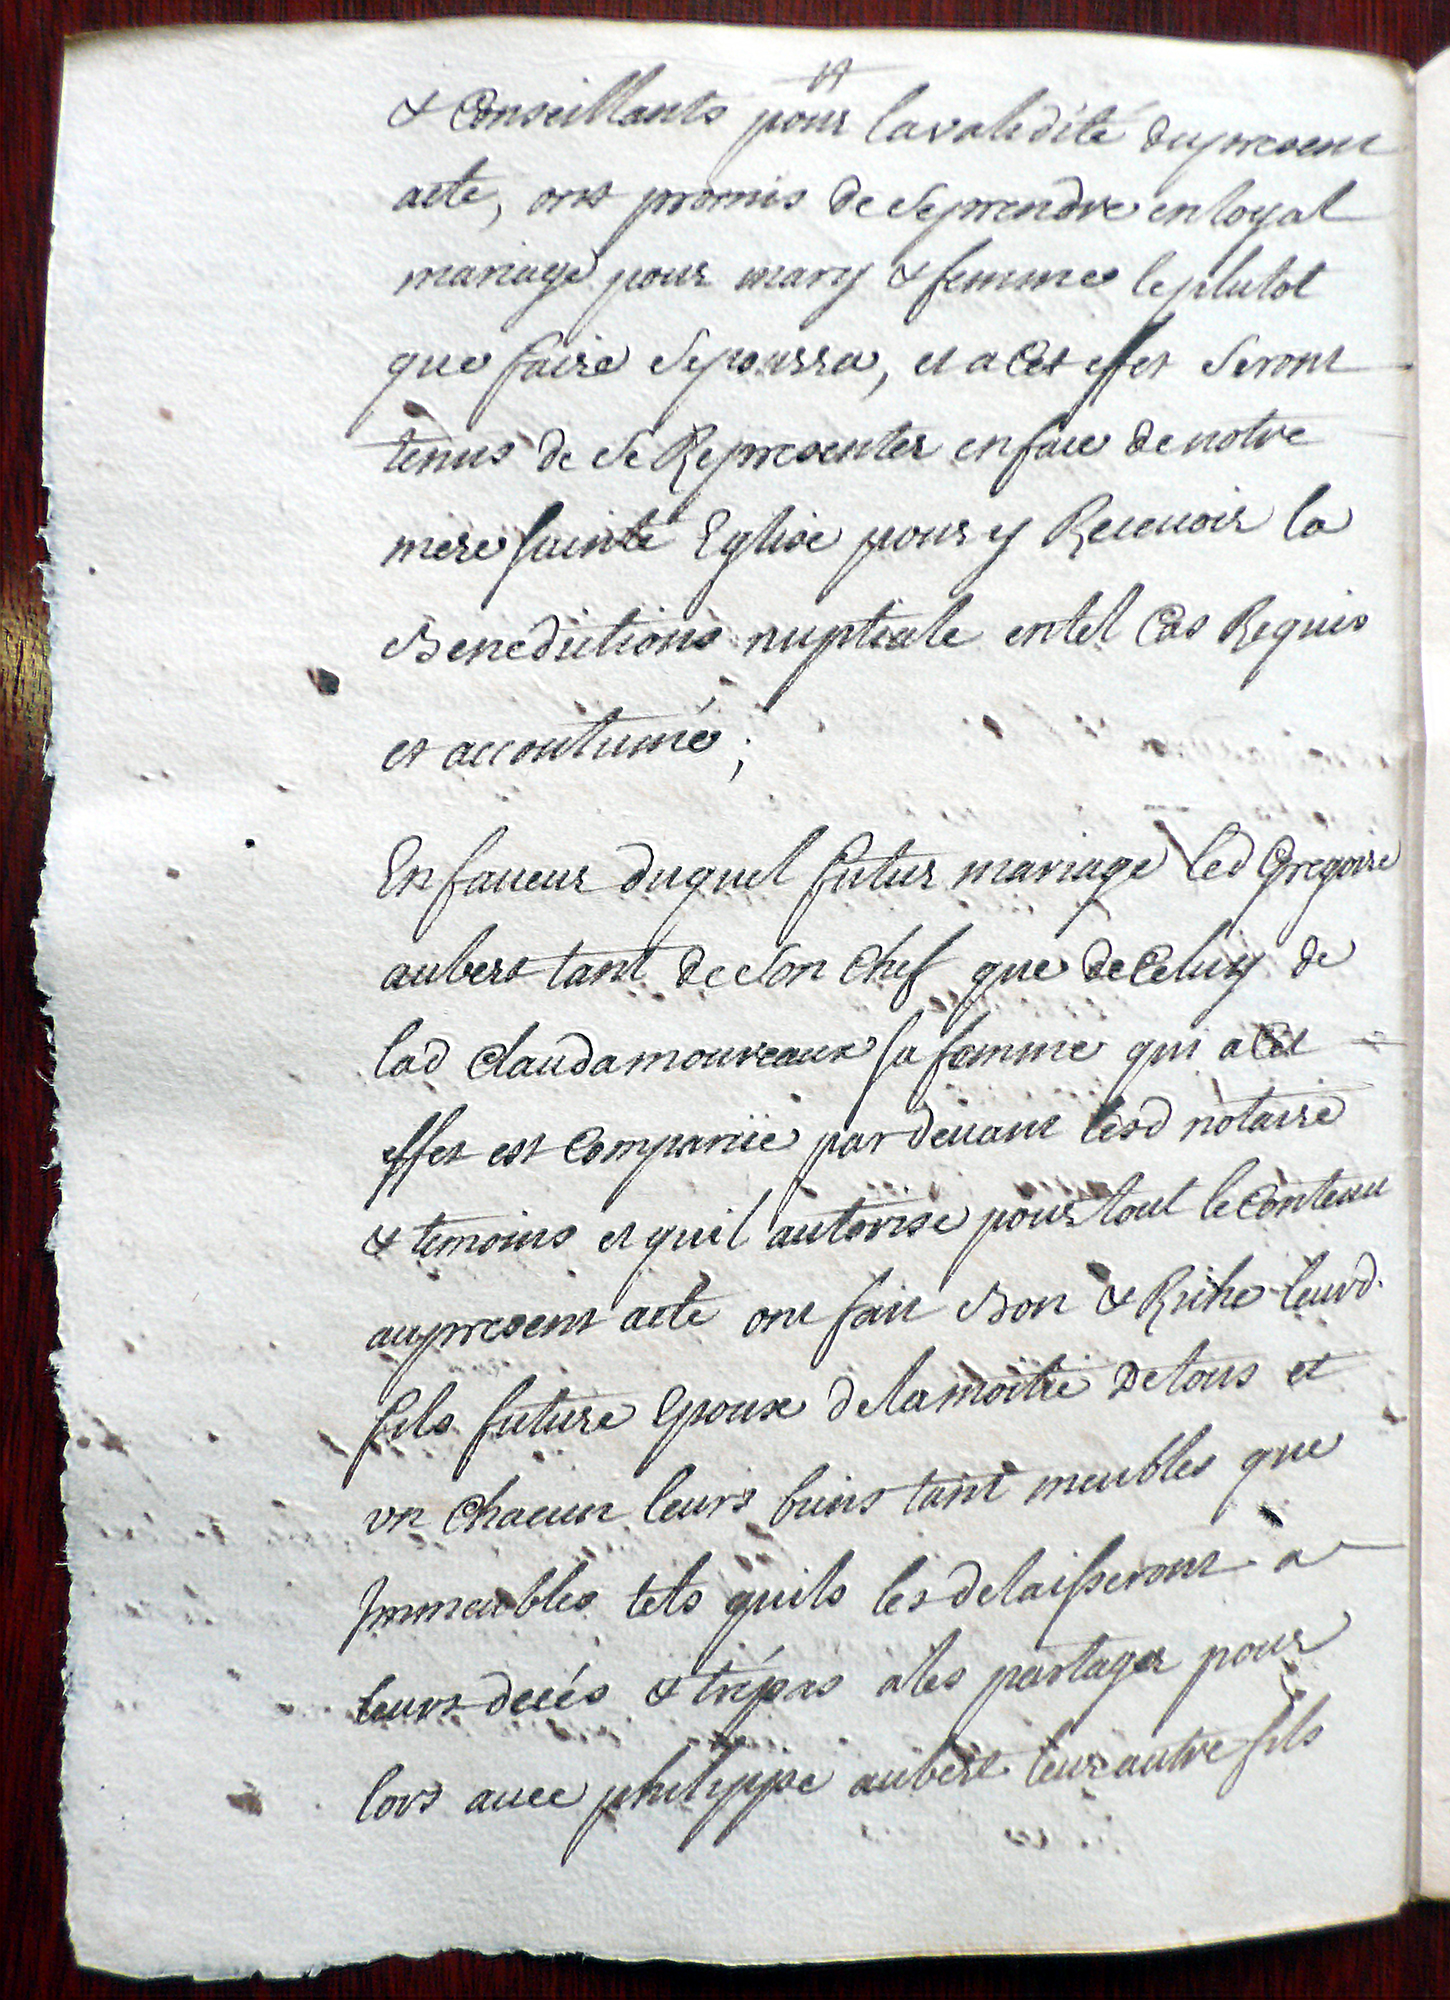 & Conseillants pour la validité du present
acte, ont promis de se prendre en loyal
mariage pour mary & femme le plutot
que faire se pourra, et a Cet effet seront
tenus de se Representer en face de notre
mere sainte Eglise pour y Recevoir la
Benedictions nuptiale en tel Cas Requis
et accoutumé;
En faveur duquel futur mariage led Gregoire
aubert tant de son Chef que de Celuy de
lad Clauda mouveaux sa femme qui a Cet
effet est Comparüe par devant lesd notaire
& temoins et quil autorise pour tout le Contenu
au present acte ont fait Bon & Riche leurd.
fils future Epoux de la moitié De tous et
un Chacun leurs biens tant meubles que
Immeubles tels quils les delaisseront a
leurs decés & trépas a les partager pour
lors avec philippe aubert leur autre fils